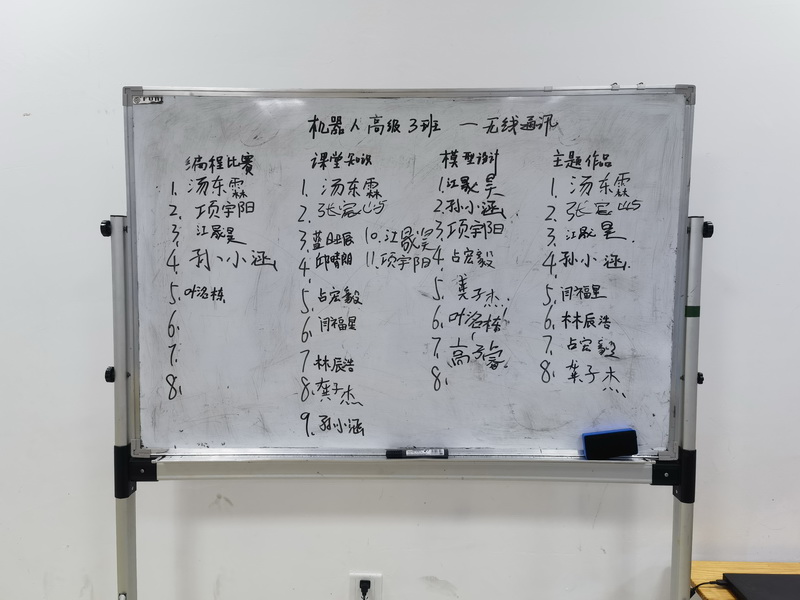 机器人高级3班 一无线通讯
编程比赛
1. 汤东霖
2. 项宇阳
3. 江晟昊
4. 孙小涵
5. 叶洺栋
6.
7.
8.
课堂知识
1. 汤东霖
2. 张宸屿
3. 蓝
4. 邱晴朗
5. 占宏毅
6. 闫福星
7. 林辰浩
8. 龚子杰
9. 孙小涵
10. 江晟昊
11. 项宇阳
模型设计
1. 江晟昊
2. 孙小涵
3. 项宇阳
4. 占宏毅
5. 龚子杰
6. 叶洺栋
7. 高子睿
8.
主题作品
1. 汤东霖
2. 张宸屿
3. 江晟昊
4. 孙小涵
5. 闫福星
6. 林辰浩
7. 占宏毅
8. 龚子杰